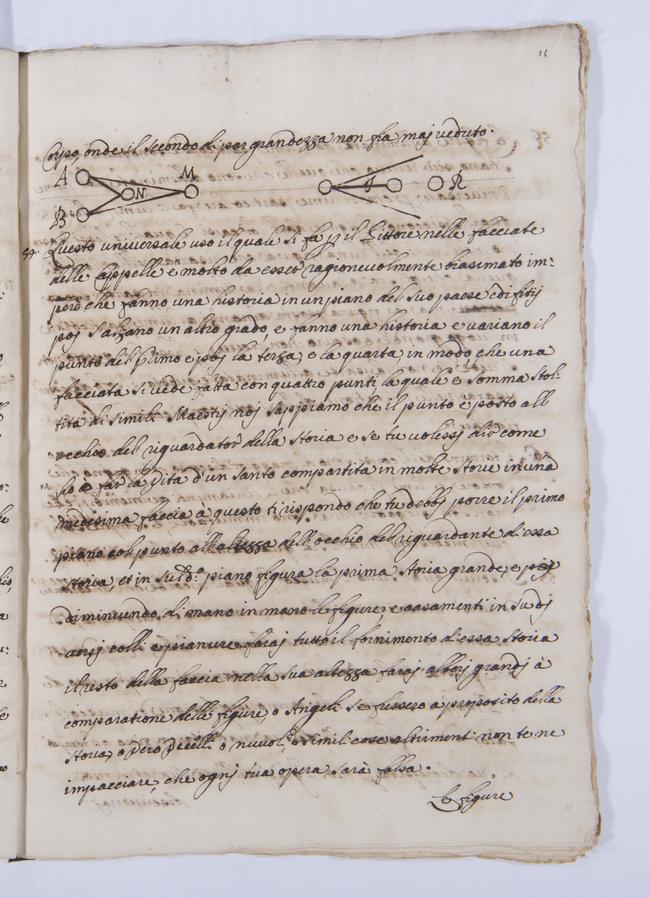 11
Corpo, onde il secondo di per grandezza non fia maj veduto.
A N M S R
B
54. Questo universale uso il quale si fa p il Pittore nelle facciate
delle Cappelle è molto da esser ragionevolmente biasimato im=
però che fanno una historia in un piano del suo paese edifitij
poj s'alzano un altro grado, e fanno una historia e variano il
punto del primo e poj la terza, e la quarta, in modo, che una
facciata si vede fatta con quattro punti la quale è somma stol:
titia di simili Maestrj noj sappiamo che il punto è posto all
occhio del riguardator della storia e se tu volessj dir come
ho a far la Vita d'un santo compartita in molte storie in una
medesima faccia à questo ti rispondo che tu debbj porre il primo
piano col punto all'altezza dell'occhio del riguardante di essa
storia, et in su'l d.º piano figura la prima storia grande, e poj
diminuendo di mano in mano le figure, e casamenti in su dj
versj colli e pianure faraj tutto il fornimento d'essa storia
il resto della faccia nella sua altezza faraj alberj grandj à
comparatione delle figure o Angeli se fussero a proposito della
storia, o vero vccelli o nuvoli, o simili cose altrimenti non te ne
impacciare, che ognj tua opera sarà falsa.
Le figure